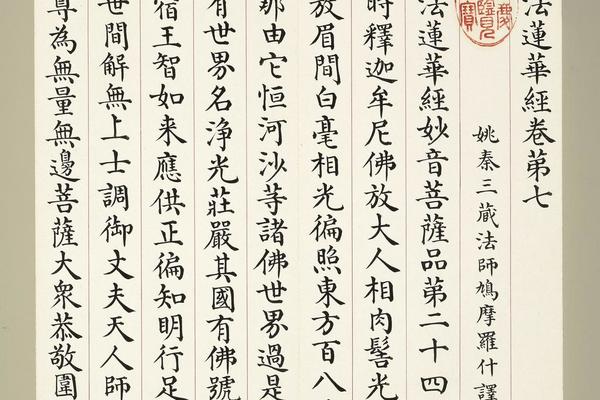 法蓮華經卷第七
姚秦三藏法師鳩摩羅什譯
法蓮華經妙音菩薩品第二十四
時釋迦牟尼佛放大人相肉髻光
放眉間白毫相光徧照東方百八
那由它恒河沙等諸佛世界過是
有世界名淨光莊嚴其國有佛號
宿王智如来應供正徧知明行足
世間解無上士調御丈夫天人師
尊為無量無邊菩薩大眾恭敬圍